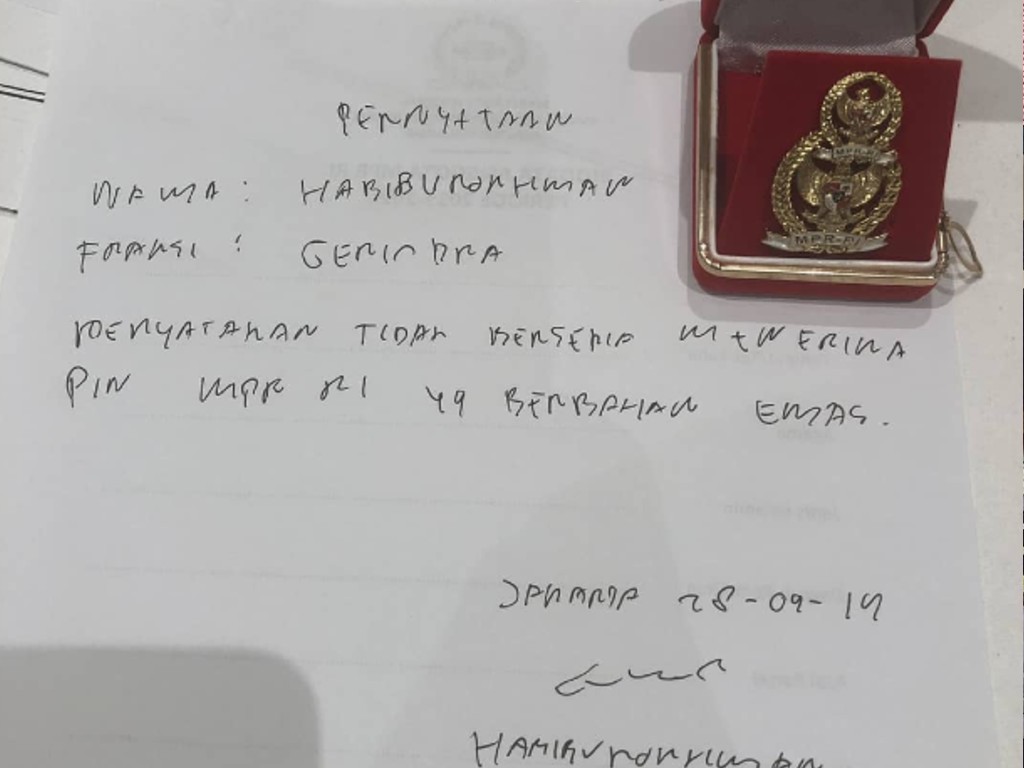 PERNYATAAN
NAMA : HABIBUROKHMAN
FRAKSI : GERINDRA
MENYATAKAN TIDAK BERSEDIA MENERIMA
PIN MPR RI YG BERBAHAN EMAS.
JAKARTA 28-09-19
HABIBUROKHMAN
MPR-RI
MPR-RI